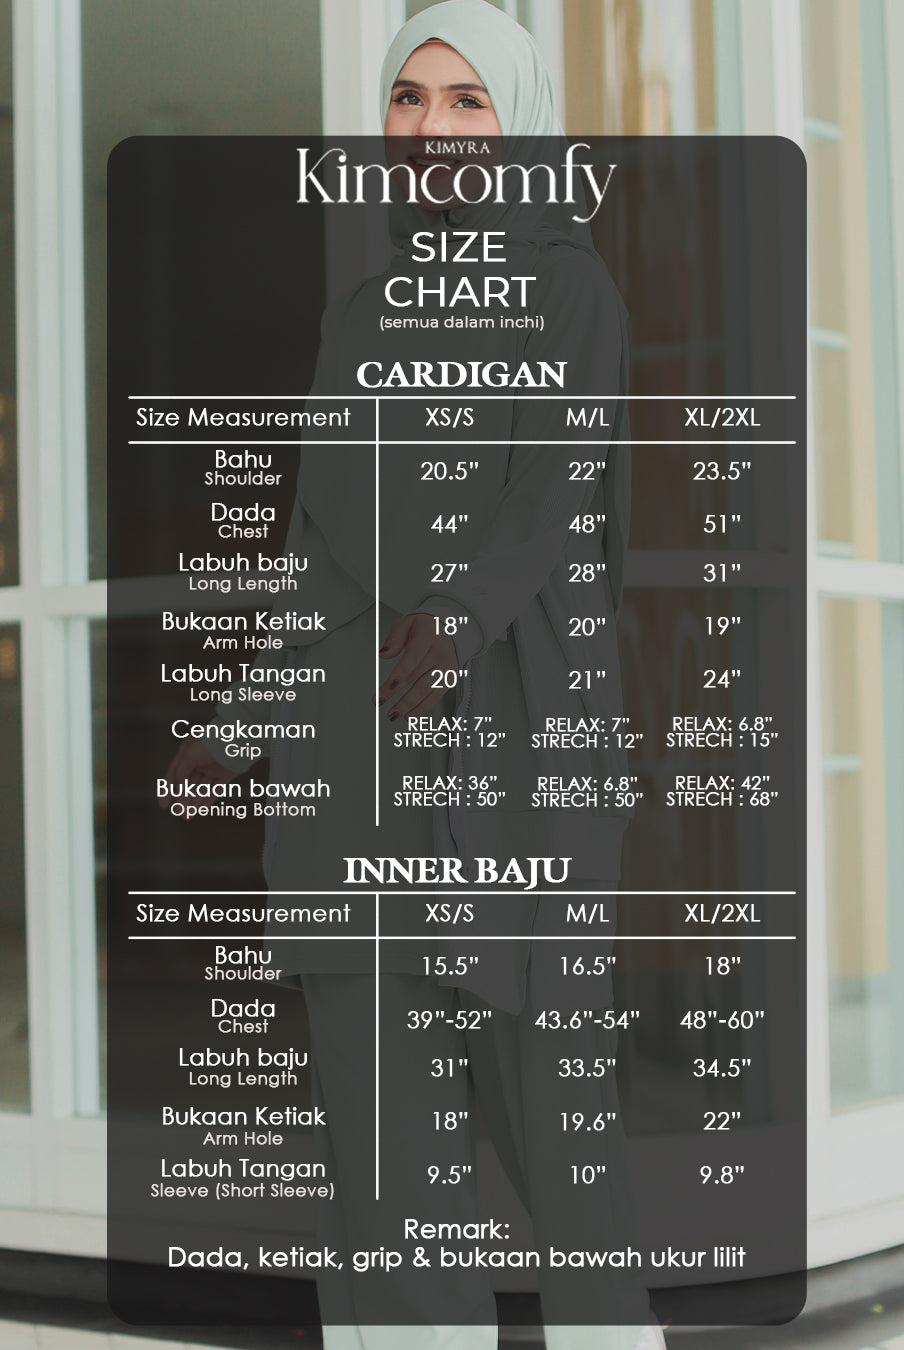 KIMYRA
Kimcomfy
SIZE
CHART
(semua dalam inchi)
CARDIGAN
Size Measurement XS/S M/L XL/2XL
Bahu
Shoulder 20.5” 22” 23.5”
Dada
Chest 44” 48” 51”
Labuh baju
Long Length 27” 28” 31”
Bukaan Ketiak
Arm Hole 18” 20” 19”
Labuh Tangan
Long Sleeve 20” 21” 24”
Cengkaman
Grip
RELAX: 7” RELAX: 7” RELAX: 6.8”
STRECH : 12” STRECH : 12” STRECH : 15”
Bukaan bawah
Opening Bottom
RELAX: 36” RELAX: 6.8” RELAX: 42”
STRECH : 50” STRECH : 50” STRECH : 68”
INNER BAJU
Size Measurement XS/S M/L XL/2XL
Bahu
Shoulder 15.5” 16.5” 18”
Dada
Chest 39”-52” 43.6”-54” 48”-60”
Labuh baju
Long Length 31” 33.5” 34.5”
Bukaan Ketiak
Arm Hole 18” 19.6” 22”
Labuh Tangan
Sleeve (Short Sleeve) 9.5” 10” 9.8”
Remark:
Dada, ketiak, grip & bukaan bawah ukur lilit